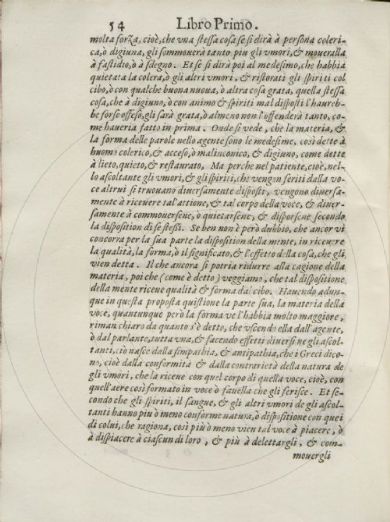 54 Libro Primo.
molta forza, cioè, che vna stessa cosa se si dirà à persona coleri-
ca, ò digiuna, gli sommouerà tanto piu gli vmori, & moueralla
à fastidio, ò à sdegno. Et se si dirà poi al medesimo, che habbia
quietata la colera, ò gli altri vmori, & ristorati gli spiriti col
cibo, ò con qualche buona nuoua, ò altra cosa grata, quella stessa
cosa, che à digiuno, ò con animo & spiriti mal disposti l'haureb-
be forse offeso, gli sarà grata, ò almeno non l'offenderà tanto, co-
me haueria fatto in prima. Onde si vede, che la materia, &
la forma delle parole nello agente sono le medesime, così dette à
huomo colerico, & acceso, ò malinconico, & digiuno, come dette
à lieto, quieto, & restaurato. Ma perche nel patiente, cioè, nel-
lo ascoltante gli vmori, & gli spiriti, che vengon feriti dalla vo-
ce altrui si truouano diuersamente disposti, vengono diuersa-
mente à riceuere tal'attione, & tal corpo della voce, & diuer-
samente à commouersene, ò quietarsene, & disporsene secondo
la disposition di se stessi. Se ben non è però dubbio, che ancor vi
concorra per la sua parte la disposition della mente, in riceuere
la qualità, la forma, ò il significato, & l'effetto della cosa, che gli
vien detta. Il che ancora si potria ridurre alla cagione della
materia, poi che (come è detto) veggiamo, che tal dispositione
della mente riceue qualità & forma dal cibo. Hauendo adun-
que in questa proposta quistione la parte sua, la materia della
voce, quantunque però la forma ve l'habbia molto maggiore,
riman chiaro da quanto s'è detto, che vscendo ella dall'agente,
ò dal parlante, tutta vna, & facendo effetti diuersi ne gli ascol-
tanti, ciò nasce dalla simpathia, & antipathia, che i Greci dico-
no, cioè dalla conformità & dalla contrarietà della natura de
gli vmori, che la riceue con quel corpo di quella voce, cioè, con
quell'aere così formato in voce ò fauella che gli ferisce. Et se-
condo che gli spiriti, il sangue, & gli altri vmori de gli ascol-
tanti hanno piu ò meno conforme natura, ò dispositione con quei
di colui, che ragiona, così più ò meno vien tal voce à piacere, ò
à dispiacere à ciascun di loro, & più à delettargli, & com-
mouergli